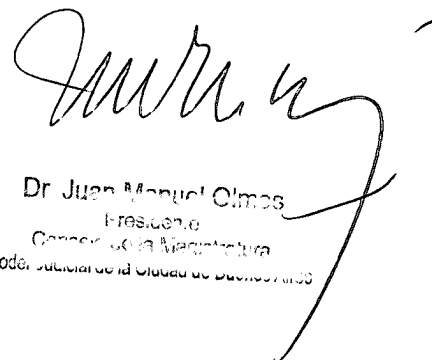 Dr Juan Manuel Olmos
Presidente
Consejo de la Magistratura
Poder Judicial de la Ciudad de Buenos Aires